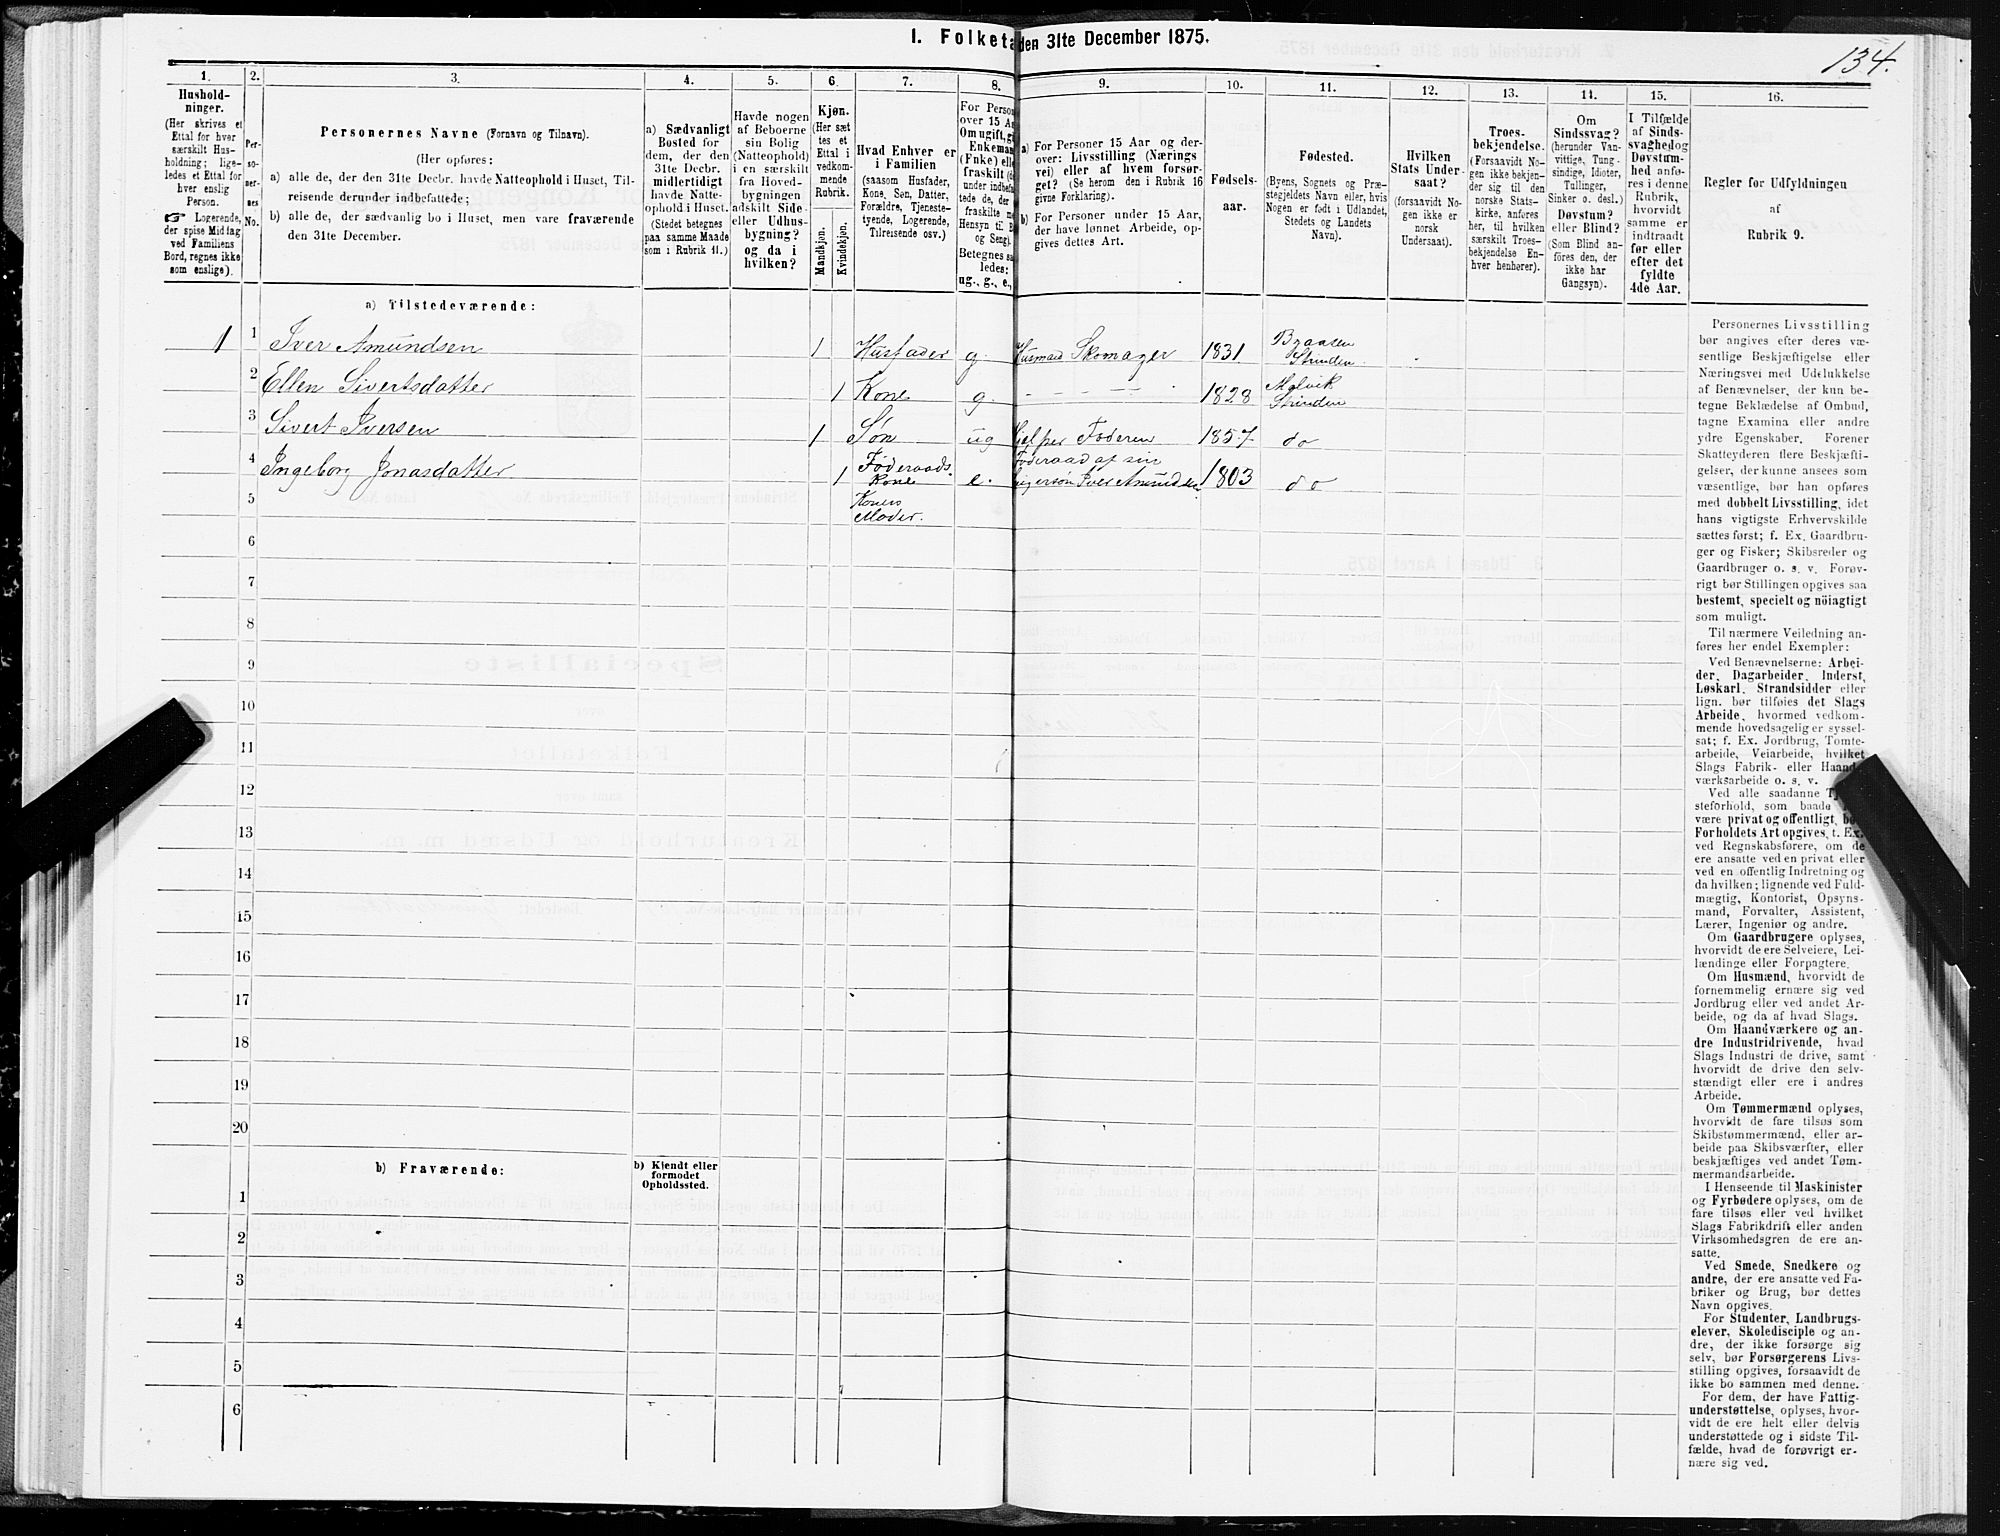 134.
I. Folketa
den 31te December 1875.
1.
2.
3.
4.
5.
6.
7.
8.
9.
10.
11.
12.
13.
14.
15.
16.
Hushold-
ninger.
(Her skrives et
Ettal for hver
særskilt Hus-
holdning; lige-
ledes et Ettal for
hver enslig
Person.
☞ Logerende,
der spise Middag
ved Familiens
Bord, regnes ikke
som enslige).
Per-
so-
ner-
nes
No.
Personernes Navne (Fornavn og Tilnavn).
(Her opføres:
a) alle de, der den 31te Decbr. havde Natteophold i Huset, Til-
reisende derunder indbefattede;
b) alle de, der sædvanlig bo i Huset, men vare fraværende
den 31te December.
a) Sædvanligt
Bosted for
dem, der den
31te Decbr.
midlertidigt
havde Natte-
ophold i Huset.
(Stedet betegnes
paa samme Maade
som i Rubrik 11.)
Havde nogen
af Beboerne
sin Bolig
(Natteophold)
i en særskilt
fra Hoved-
bygningen
adskilt Side-
eller Udhus-
bygning?
og da i
hvilken?
Kjøn.
(Her sæt
tes et
Ettal i
vedkom-
mende
Rubrik.
Mandkjøn.
Kvindekjøn.
Hvad Enhver er
i Familien
(saasom Husfader,
Kone, Søn, Datter,
Forældre, Tjeneste-
tyende, Logerende,
Tilreisende osv.)
For Person
over 15 A
Om ugift, gi
Enkeman
(Fnke) elle
fraskilt (
under indbef
tede de, der
fraskilte
Hensyn ti. B
og Seng).
Betegnes sa
ledes:
ug., g., e.,
a) For Personer 15 Aar og der-
over: Livsstilling (Nærings
vei) eller af hvem forsør-
get? (Se herom den i Rubrik 16
givne Forklaring).
b) For Personer under 15 Aar,
der have lønnet Arbeide, op-
gives dettes Art.
Fødsels-
aar.
Fødested.
(Byens, Sognets og Præ-
stegjeldets Navn eller, hvis
Nogen er født i Udlandet,
Stedets og Landets
Navn).
Hvilken
Stats Under-
saat?
(forsaavidt No-
gen ikke er
norsk
Undersaat).
Troes-
bekjendelse.
(Forsaavidt No-
gen ikke bekjen-
der sig til den
norske Stats-
kirke, anføres
her, til hvilken
særskilt Troes-
bekjendelse En-
hver henhører).
Om
Sindssvag?
(herunder Van-
vittige, Tung-
sindige, Idioter,
Tullinger,
Sinker o. desl.)
Døvstum?
eller Blind?
(Som Blind an-
føres den, der
ikke har
Gangsyn).
I Tilfælde
af Sinds-
svaghed og
Døvstum-
hed anfø-
res i denne
Rubrik,
hvorvidt
samme er
indtraadt
før eller
efter det
fyldte
4de Aar.
Regler for Udfyldningen
af
Rubrik 9.
a) Tilstedeværende:
1 1 Iver Amundsen 1 Husfader g. Husmand Skomager 1831 Braaten
Strinden
2 Ellen Sivertsdatter 1 Kone g. - - - - 1828 Malvik
Strinden
3 Sivert Iversen 1 Søn ug Hjelper Faderen 1857 do
4 Ingeborg Jonasdatter 1 Føderaads
Kone e. Føderaad af sin
Svigersøn Iver Amundsen 1803 do
5 Konens
Moder.
6
7
8
9
10
11
12
13
14
15
16
17
18
19
20
b) Fraværende:
b) Kjendt eller
formodet
Opholdssted.
1
2
3
4
5
6
Personernes Livsstilling
bør angives efter deres væ-
sentlige Beskjæftigelse eller
Næringsvei med Udelukkelse
af Benævnelser, der kun be-
tegne Beklædelse af Ombud,
tagne Examina eller andre
ydre Egenskaber. Forener
Skatteyderen flere Beskjæfti-
gelser, der kunne ansees som
væsentlige, bør han opføres
med dobbelt Livsstilling, idet
hans vigtigste Erhvervskilde
sættes først; f. Ex. Gaardbru-
ger og Fisker; Skibsreder og
Gaardbruger o. s. v. Forøv-
rigt bør Stillingen opgives saa
bestemt, specielt og nöiagtigt
som muligt.
Til nærmere Veiledning an-
føres her endel Exempler:
Ved Benævnelserne: Arbei-
der, Dagarbeider, Inderst,
Løskarl, Strandsidder eller
lign. bør tilføies det Slags
Arbeide, hvormed vedkom-
mende hovedsagelig er syssel-
sat; f. Ex. Jordbrug, Tomte-
arbeide, Veiarbeide, hvilket
Slags Fabrik- eller Haand-
værksarbeide o. s. v.
Ved alle saadanne Tje-
steforhold, som baade
være privat og offentligt, bør
Forholdets Art opgives, t. Ex.
ved Regnskabsførere, om de
ere ansatte ved en privat eller
ved en offentlig Indretning og
da hvilken; lignende ved Fuld-
mægtig, Kontorist, Opsyns-
mand, Forvalter, Assistent,
Lærer, Ingeniør og andre.
Om Gaardbrugere oplyses,
hvorvidt de ere Selveiere, Lei-
lændinge eller Forpagtere.
Om Husmænd, hvorvidt de
fornemmelig ernære sig ved
Jordbrug eller ved andet Ar-
beide, og da af hvad Slags.
Om Haandværkere og an-
dre Industridrivende, hvad
Slags Industri de drive, samt
hvorvidt de drive den selv-
stændigt eller ere i andres
Arbeide.
Om Tømmermænd oplyses,
hvorvidt de fare tilsøs som
Skibstømmermænd, eller ar-
beide paa Skibsværfter, eller
beskjæftiges ved andet Tøm-
mermandsarbeide.
I Henseende til Maskinister
og Fyrbødere oplyses, om de
fare tilsøs eller ved hvilket
Slags Fabrikdrift eller anden
Virksomhedsgren de ere an-
satte.
Ved Smede, Snedkere og
andre, der ere ansatte ved Fa-
briker og Brug, bør dettes
Navn opgives.
For Studenter, Landbrugs-
elever, Skoledisciple og an-
dre, der ikke forsørge sig
selv, bør Forsørgerens Livs-
stilling opgives, forsaavidt de
ikke bo sammen med denne.
For dem, der have Fattig-
understøttelse, oplyses, hvor-
vidt de ere helt eller delvis
understøttede og i sidste Til-
fælde, hvad de forøvrigt er-
nære sig ved.